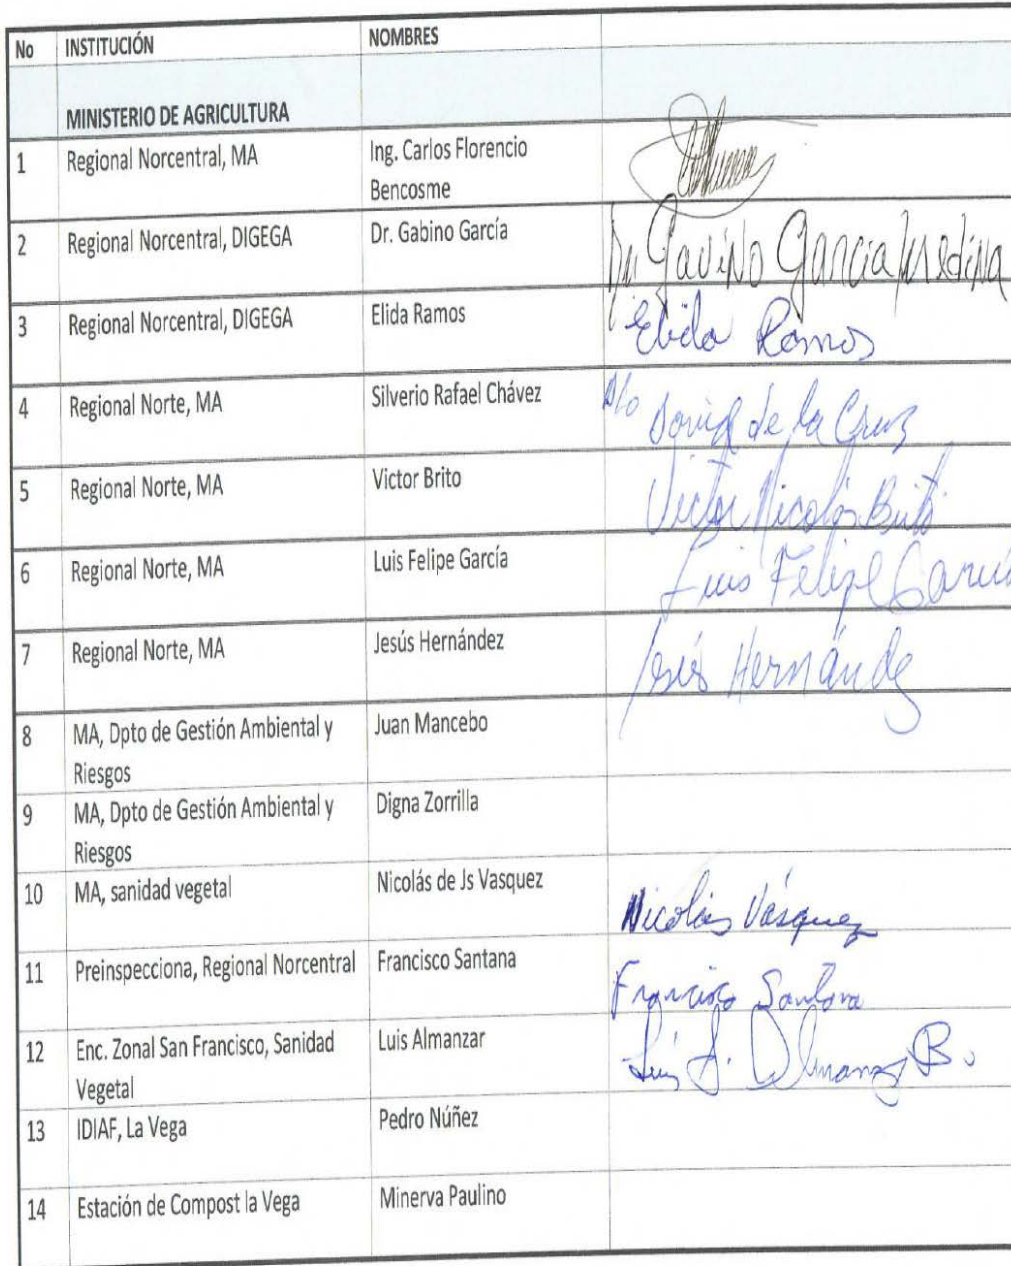 No INSTITUCIÓN NOMBRES
MINISTERIO DE AGRICULTURA
1 Regional Norcentral, MA Ing. Carlos Florencio
Bencosme
2 Regional Norcentral, DIGEGA Dr. Gabino García Dr Gavino Garcia Medina
3 Regional Norcentral, DIGEGA Elida Ramos Elida Ramos
4 Regional Norte, MA Silverio Rafael Chávez David de la Cruz
5 Regional Norte, MA Victor Brito Victor Nicolás Brito
6 Regional Norte, MA Luis Felipe García Luis Felipe García
7 Regional Norte, MA Jesús Hernández Jesús Hernández
8 MA, Dpto de Gestión Ambiental y Juan Mancebo
Riesgos
9 MA, Dpto de Gestión Ambiental y Digna Zorrilla
Riesgos
10 MA, sanidad vegetal Nicolás de Js Vasquez Nicolás Vásquez
11 Preinspecciona, Regional Norcentral Francisco Santana Francisco Santana
12 Enc. Zonal San Francisco, Sanidad Luis Almanzar Luis Almanzar B.
Vegetal
13 IDIAF, La Vega Pedro Núñez
14 Estación de Compost la Vega Minerva Paulino